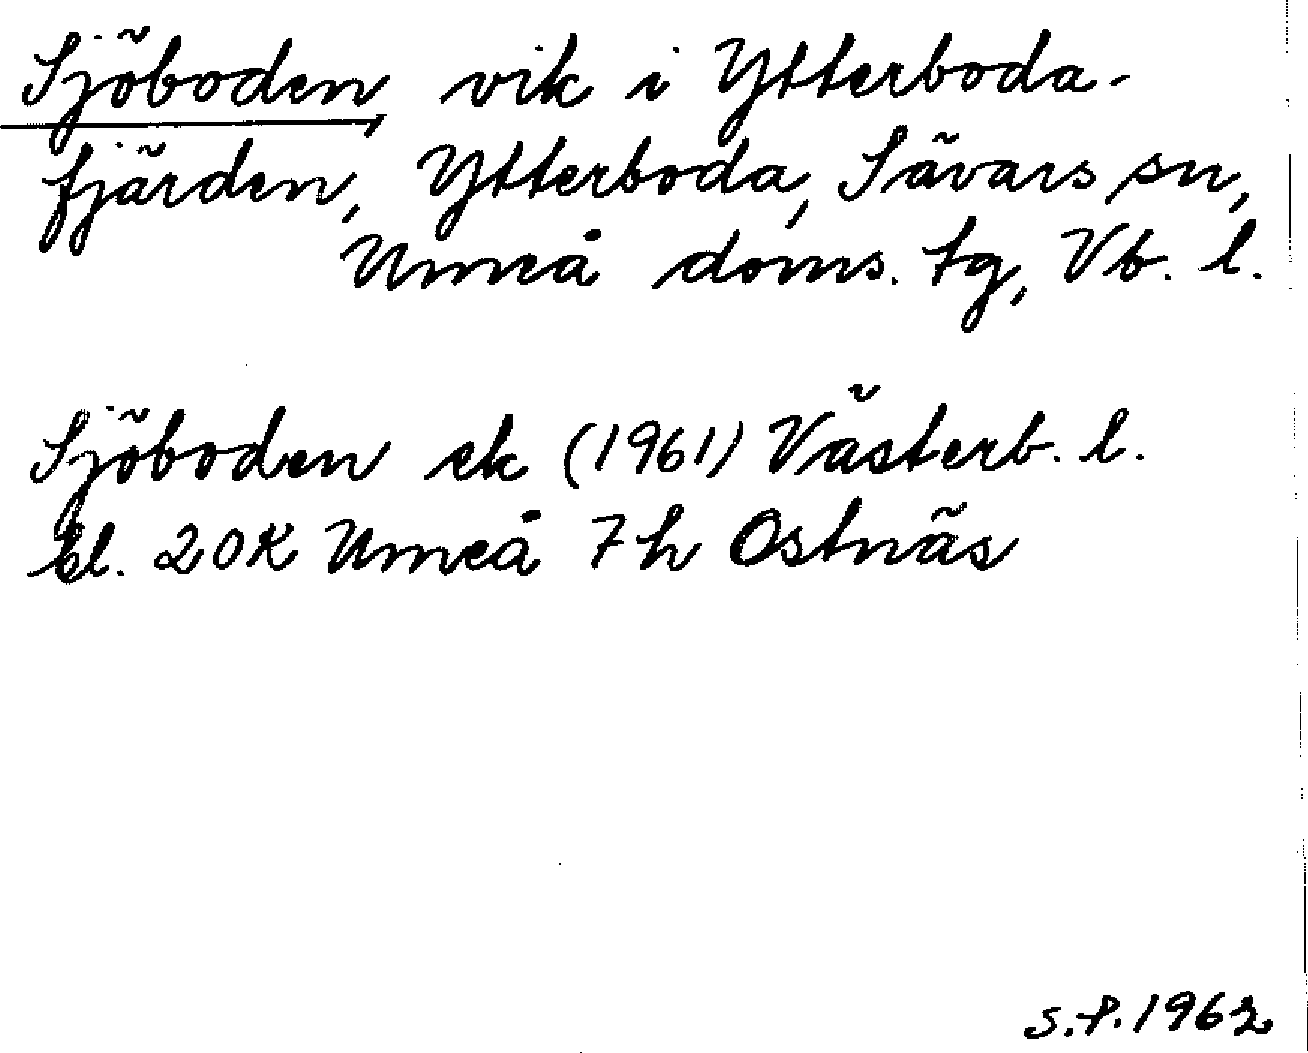 Sjöboden, vik i Ytterboda-
fjärden, Ytterboda, Sävars sn,
Umeå doms. tg, Vb. l.
Sjöboden ek (1961) Västerb. l.
bl. 20K Umeå 7h Ostnäs
S.P. 1962